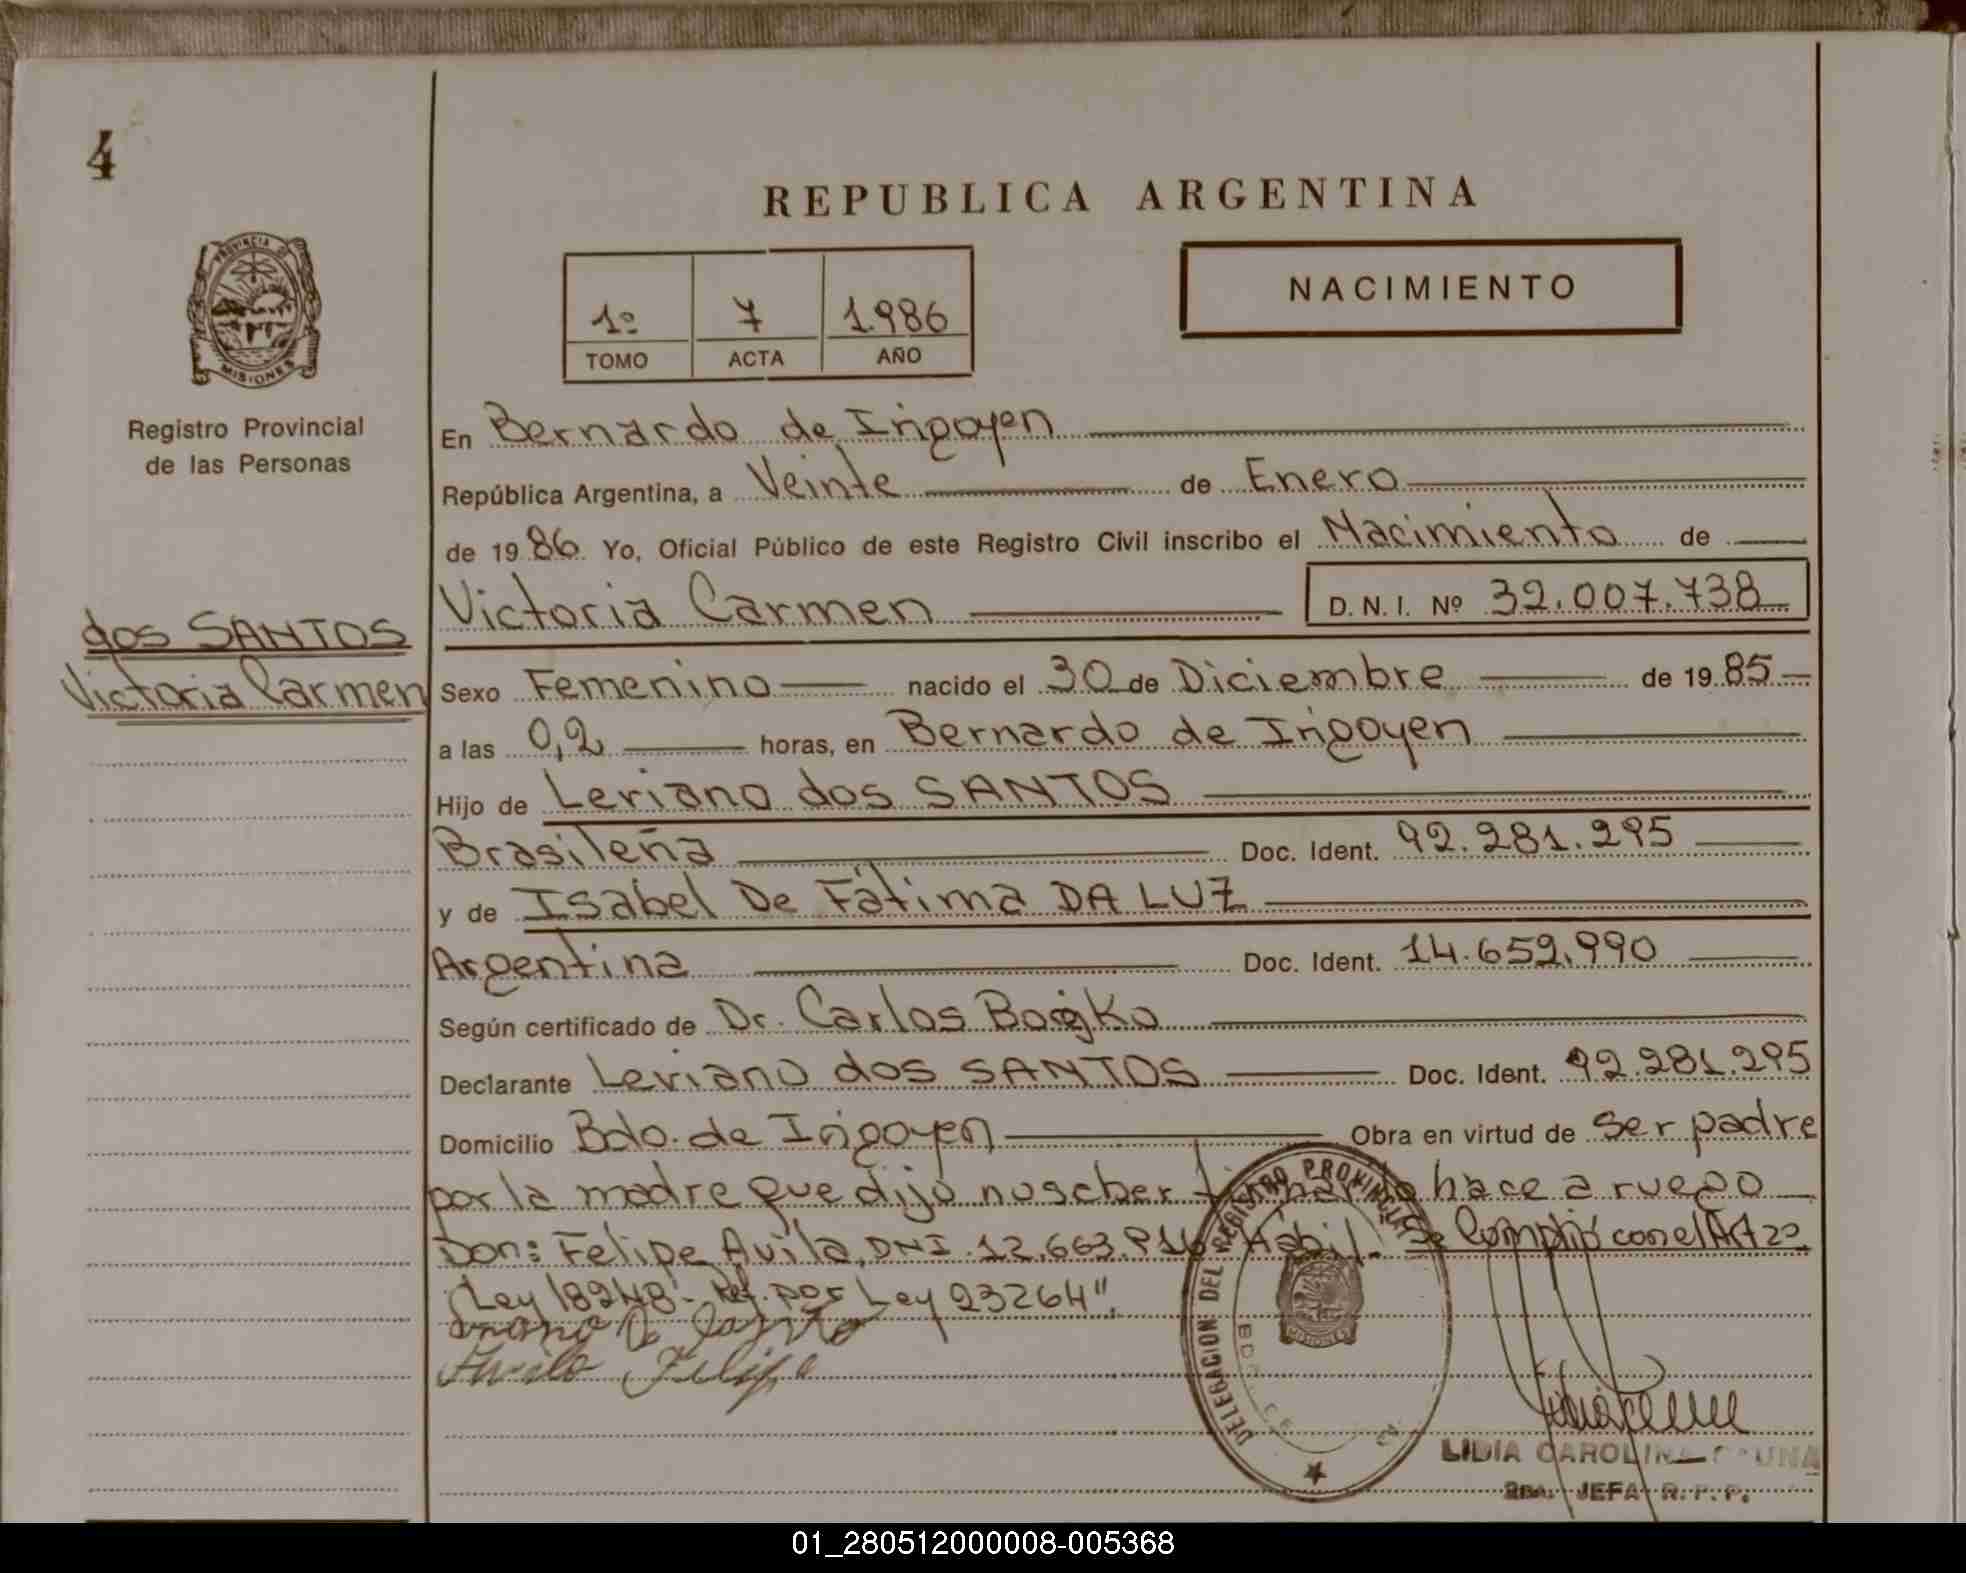 4
REPUBLICA ARGENTINA
PROVINCIA DE
MISIONES
1º 7 1.986
TOMO ACTA AÑO
NACIMIENTO
Registro Provincial
de las Personas
En Bernardo de Irigoyen
República Argentina, a Veinte de Enero
de 19 86. Yo, Oficial Público de este Registro Civil inscribo el Nacimiento de
Victoria Carmen D. N. I. Nº 32.007.738
dos SANTOS
Victoria Carmen
Sexo Femenino nacido el 30 de Diciembre de 19 85
a las 0,2 horas, en Bernardo de Irigoyen
Hijo de Leriano dos SANTOS
Brasileña Doc. Ident. 92.281.295
y de Isabel De Fátima DA LUZ
Argentina Doc. Ident. 14.652.990
Según certificado de Dr. Carlos
Declarante Leriano dos SANTOS Doc. Ident. 92.281.295
Domicilio Bdo. de Irigoyen Obra en virtud de ser padre
por la madre que dijo no saber firmar lo hace a ruego
Don: Felipe Avila, DNI. 12.663.916 Hábil.- Se Cumplió con el Art 2º
"Ley 18248"- Ref. por Ley 23264".
Avila Felipe
DELEGACION DEL REGISTRO PROVINCIAL
LIDIA CAROLINA
2DA. JEFA R. P. P.
01_280512000008-005368